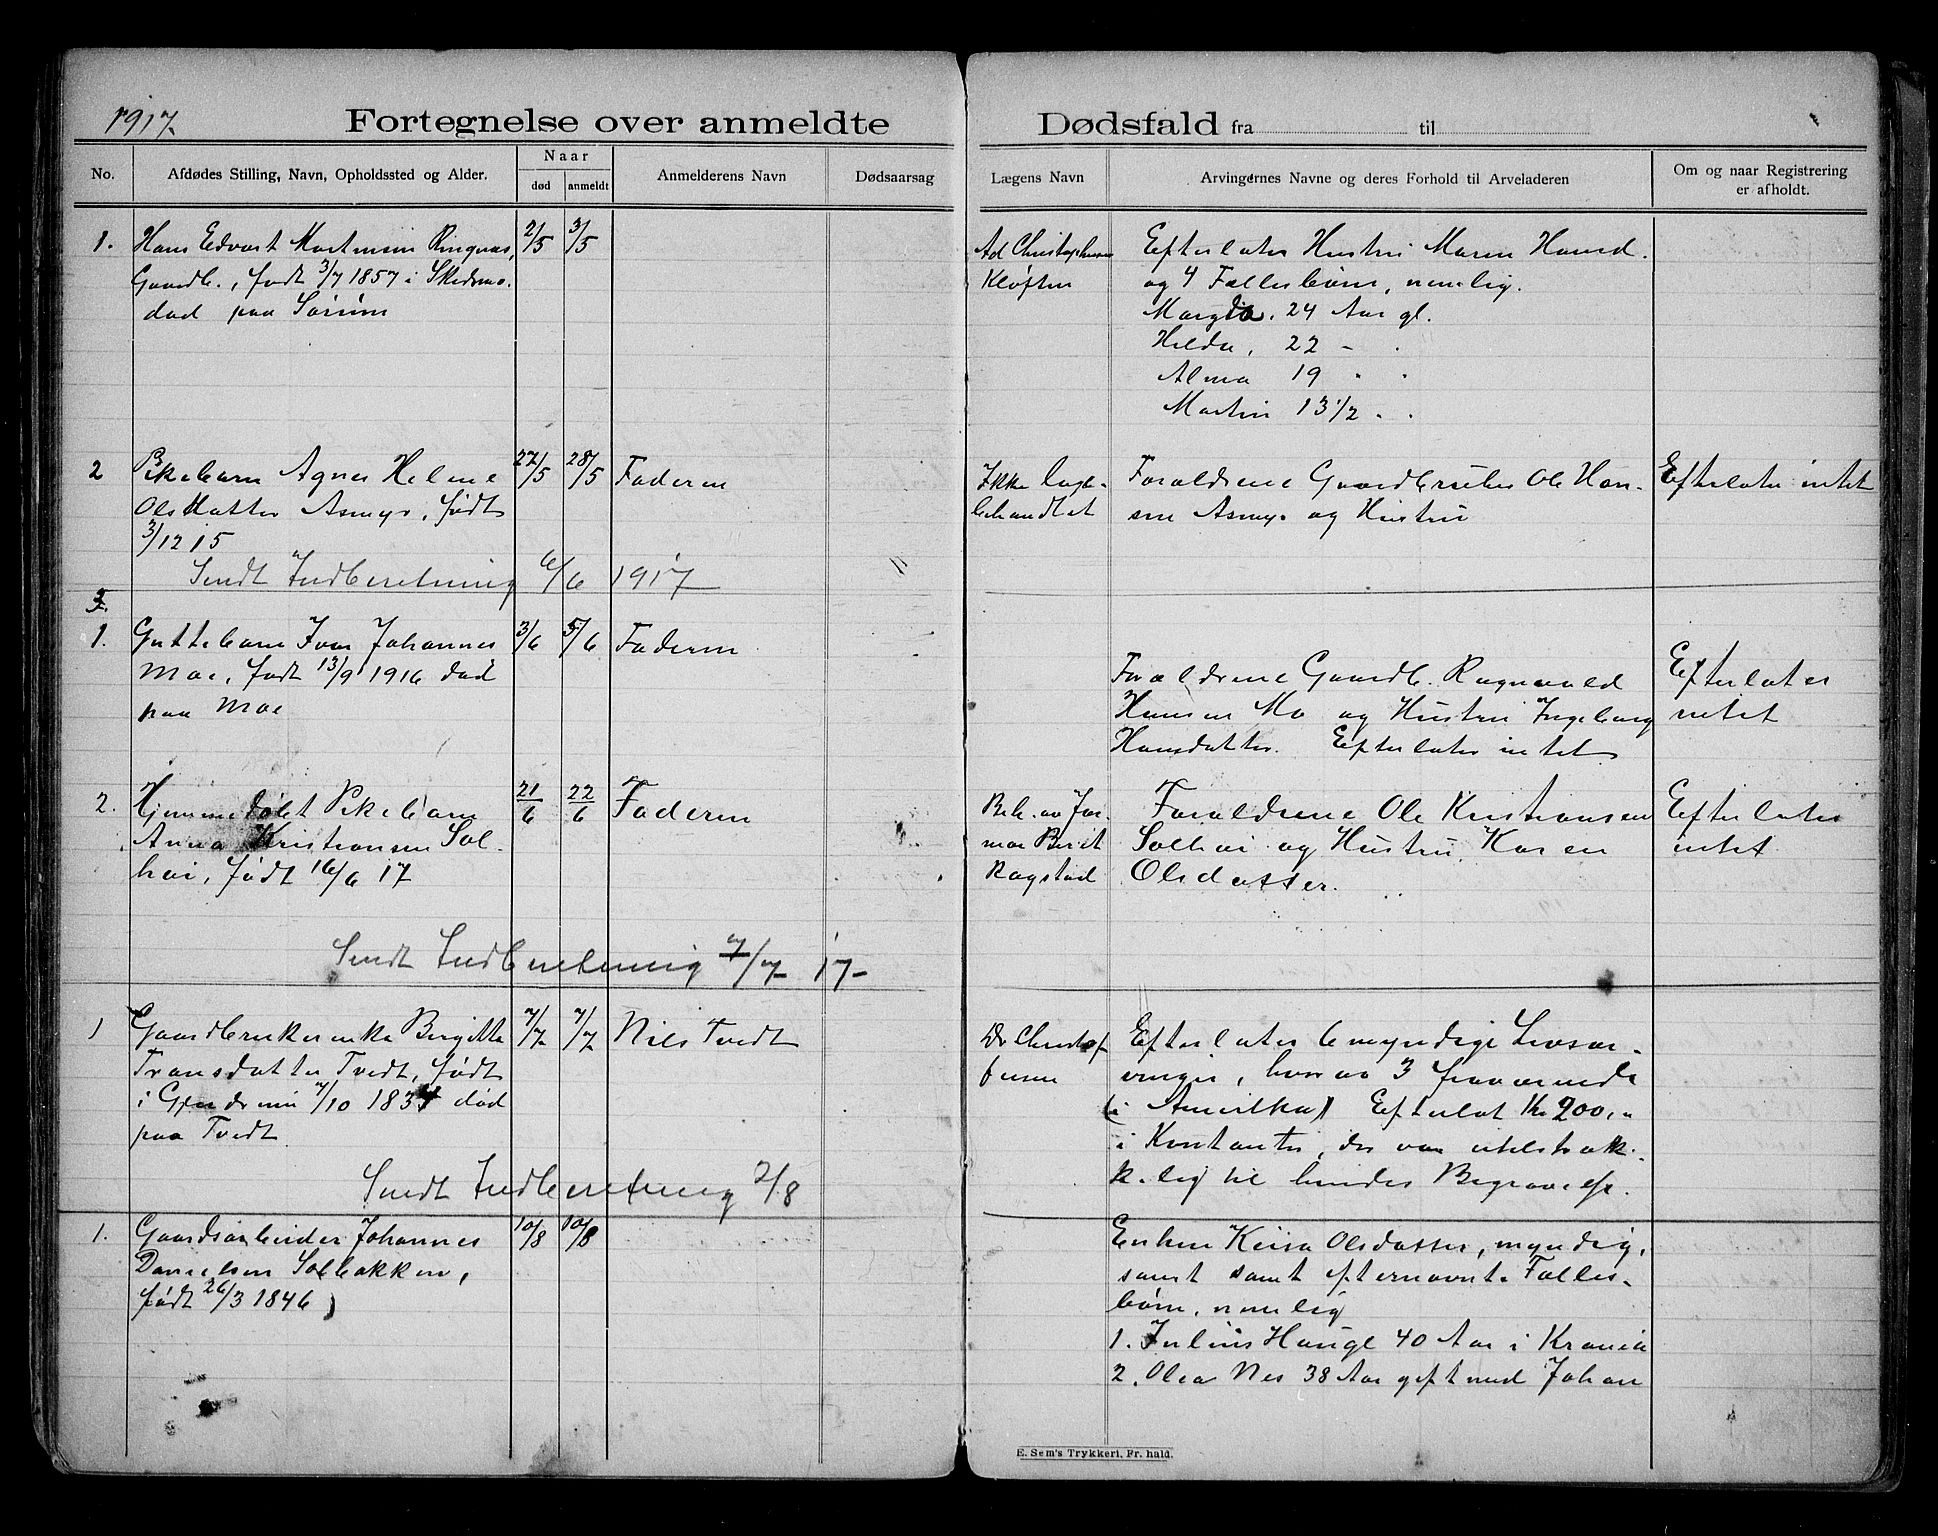 1917.
Fortegnelse over anmeldte Dødsfald fra til
No.
Afdødes Stilling, Navn, Opholdssted og Alder.
Naar
død anmeldt
Anmelderens Navn
Dødsaarsag
Lægens Navn
Arvingernes Navne og deres Forhold til Arveladeren
Om og naar Registrering
er afholdt.
1. Hans Edvart Martinsen Ringnæs, 2/5 3/5
Gaardb., født 3/7 1857 i Skedsmo.
død paa Sørum
Ad Christophersen
Kløften
Efterlater Hustru Maren Hansd.
og 4 Fællesbørn, nemlig.
24 Aar gl.
Hilda, 22 - .
Alma 19 " "
Martin 13 1/2 " .
2 Pikebarn Agnes Helene 27/5 28/5 Faderen
Olsdatter Asmyr, født
3/12 15
Ikke læge-
behandlet
Forældrene Gaardbruker Ole Han-
sen Asmyr og Hustru
Efterlater intet
Sendt Indberetning 6/6 1917
3.
1. Guttebarn Ivar Johannes 3/6 5/6 Faderen
Moe, født 13/9 1916 død
paa Moe
Forældrene Gaardb. Ragnvald
Hansen Mo og Hustru Ingeborg
Hansdatter. Efterlater intet
Efterlater
intet
2. Hjemmedøbt Pikebarn 21/6 22/6 Faderen
Anna Kristiansen Sol-
høi, født 16/6 17
Beh. av Jor-
mor Berit
Ragstad
Forældrene Ole Kristiansen
Solhøi og Hustru Karen
Olsdatter.
Efterlater
intet
Sendt Indberetning 7/7 17-
1 Gaardbrukerenke Birgitte 7/7 7/7 Nils Tvedt
Transdatter Tvedt, født
i Gjerdrum 7/10 død
paa Tvedt
Dr Christof
fersen
Efterlater 6 myndige Livsar-
vinger, hvorav 3 fraværende
(i Amerika) Efterlot Kr 200,-
i Kontanter, der var utilstræk-
k.lig til hendes Begravelse.
Sendt Indberetning 2/8
1. Gaardsarbeider Johannes 10/8 10/8
Danielsen Solbakken,
født 26/3 1846
Enken Kersa Olsdatter, myndig,
samt samt efternævnte Fælles-
børn, nemlig
1. Julius Hauge 40 Aar i Krania
2. Olea Nes 38 Aar gift med Johan
E. Sem's Trykkeri, Fr. hald.